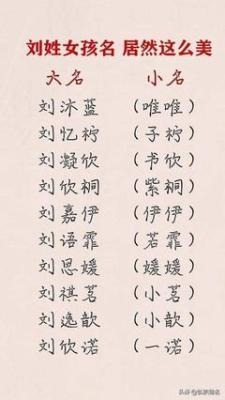 刘姓女孩名 居然这么美
大名 小名
刘沐蓝 (唯唯)
刘忆柠 (子柠)
刘凝欣 (书欣)
刘欣祠 (紫祠)
刘嘉伊 (伊伊)
刘语霏 (若霏)
刘思媛 (媛媛)
刘祺茗 (小茗)
刘逸歆 (小歆)
刘欣诺 (一诺)